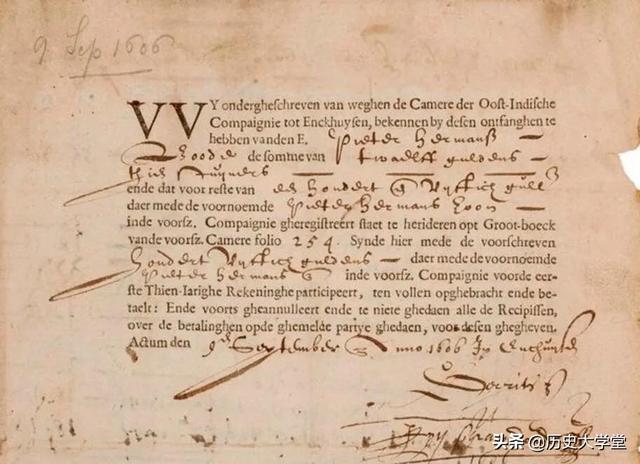 9 Sep 1606
VVY ondergheschreven van weghen de Camere der Oost-Indische
Compaignie tot Enckhuysen, bekennen by desen ontfanghen te
hebben vanden E. Pieter Hermansz
de somme van twaelff guldens
thien stuyvers
ende dat voor reste van hondert vyftich gull
daer mede de voornoemde Pieter Hermans zoon
inde voorsz. Compaignie gheregistreert staet te herideren opt Groot-boeck
vande voorsz. Camere folio 254. Synde hier mede de voorschreven
hondert vyftich guldens daer mede de voornoemde
Pieter Hermans inde voorsz. Compaignie voorde eer-
ste Thien-Iarighe Rekeninghe participeert, ten vollen opghebracht ende be-
taelt: Ende voorts gheannulleert ende te niete ghedaen alle de Recipissen,
over de betalinghen opde ghemelde partye ghedaen, voor desen ghegheven.
Actum den 9 September Anno 1606
头条 @历史大学堂